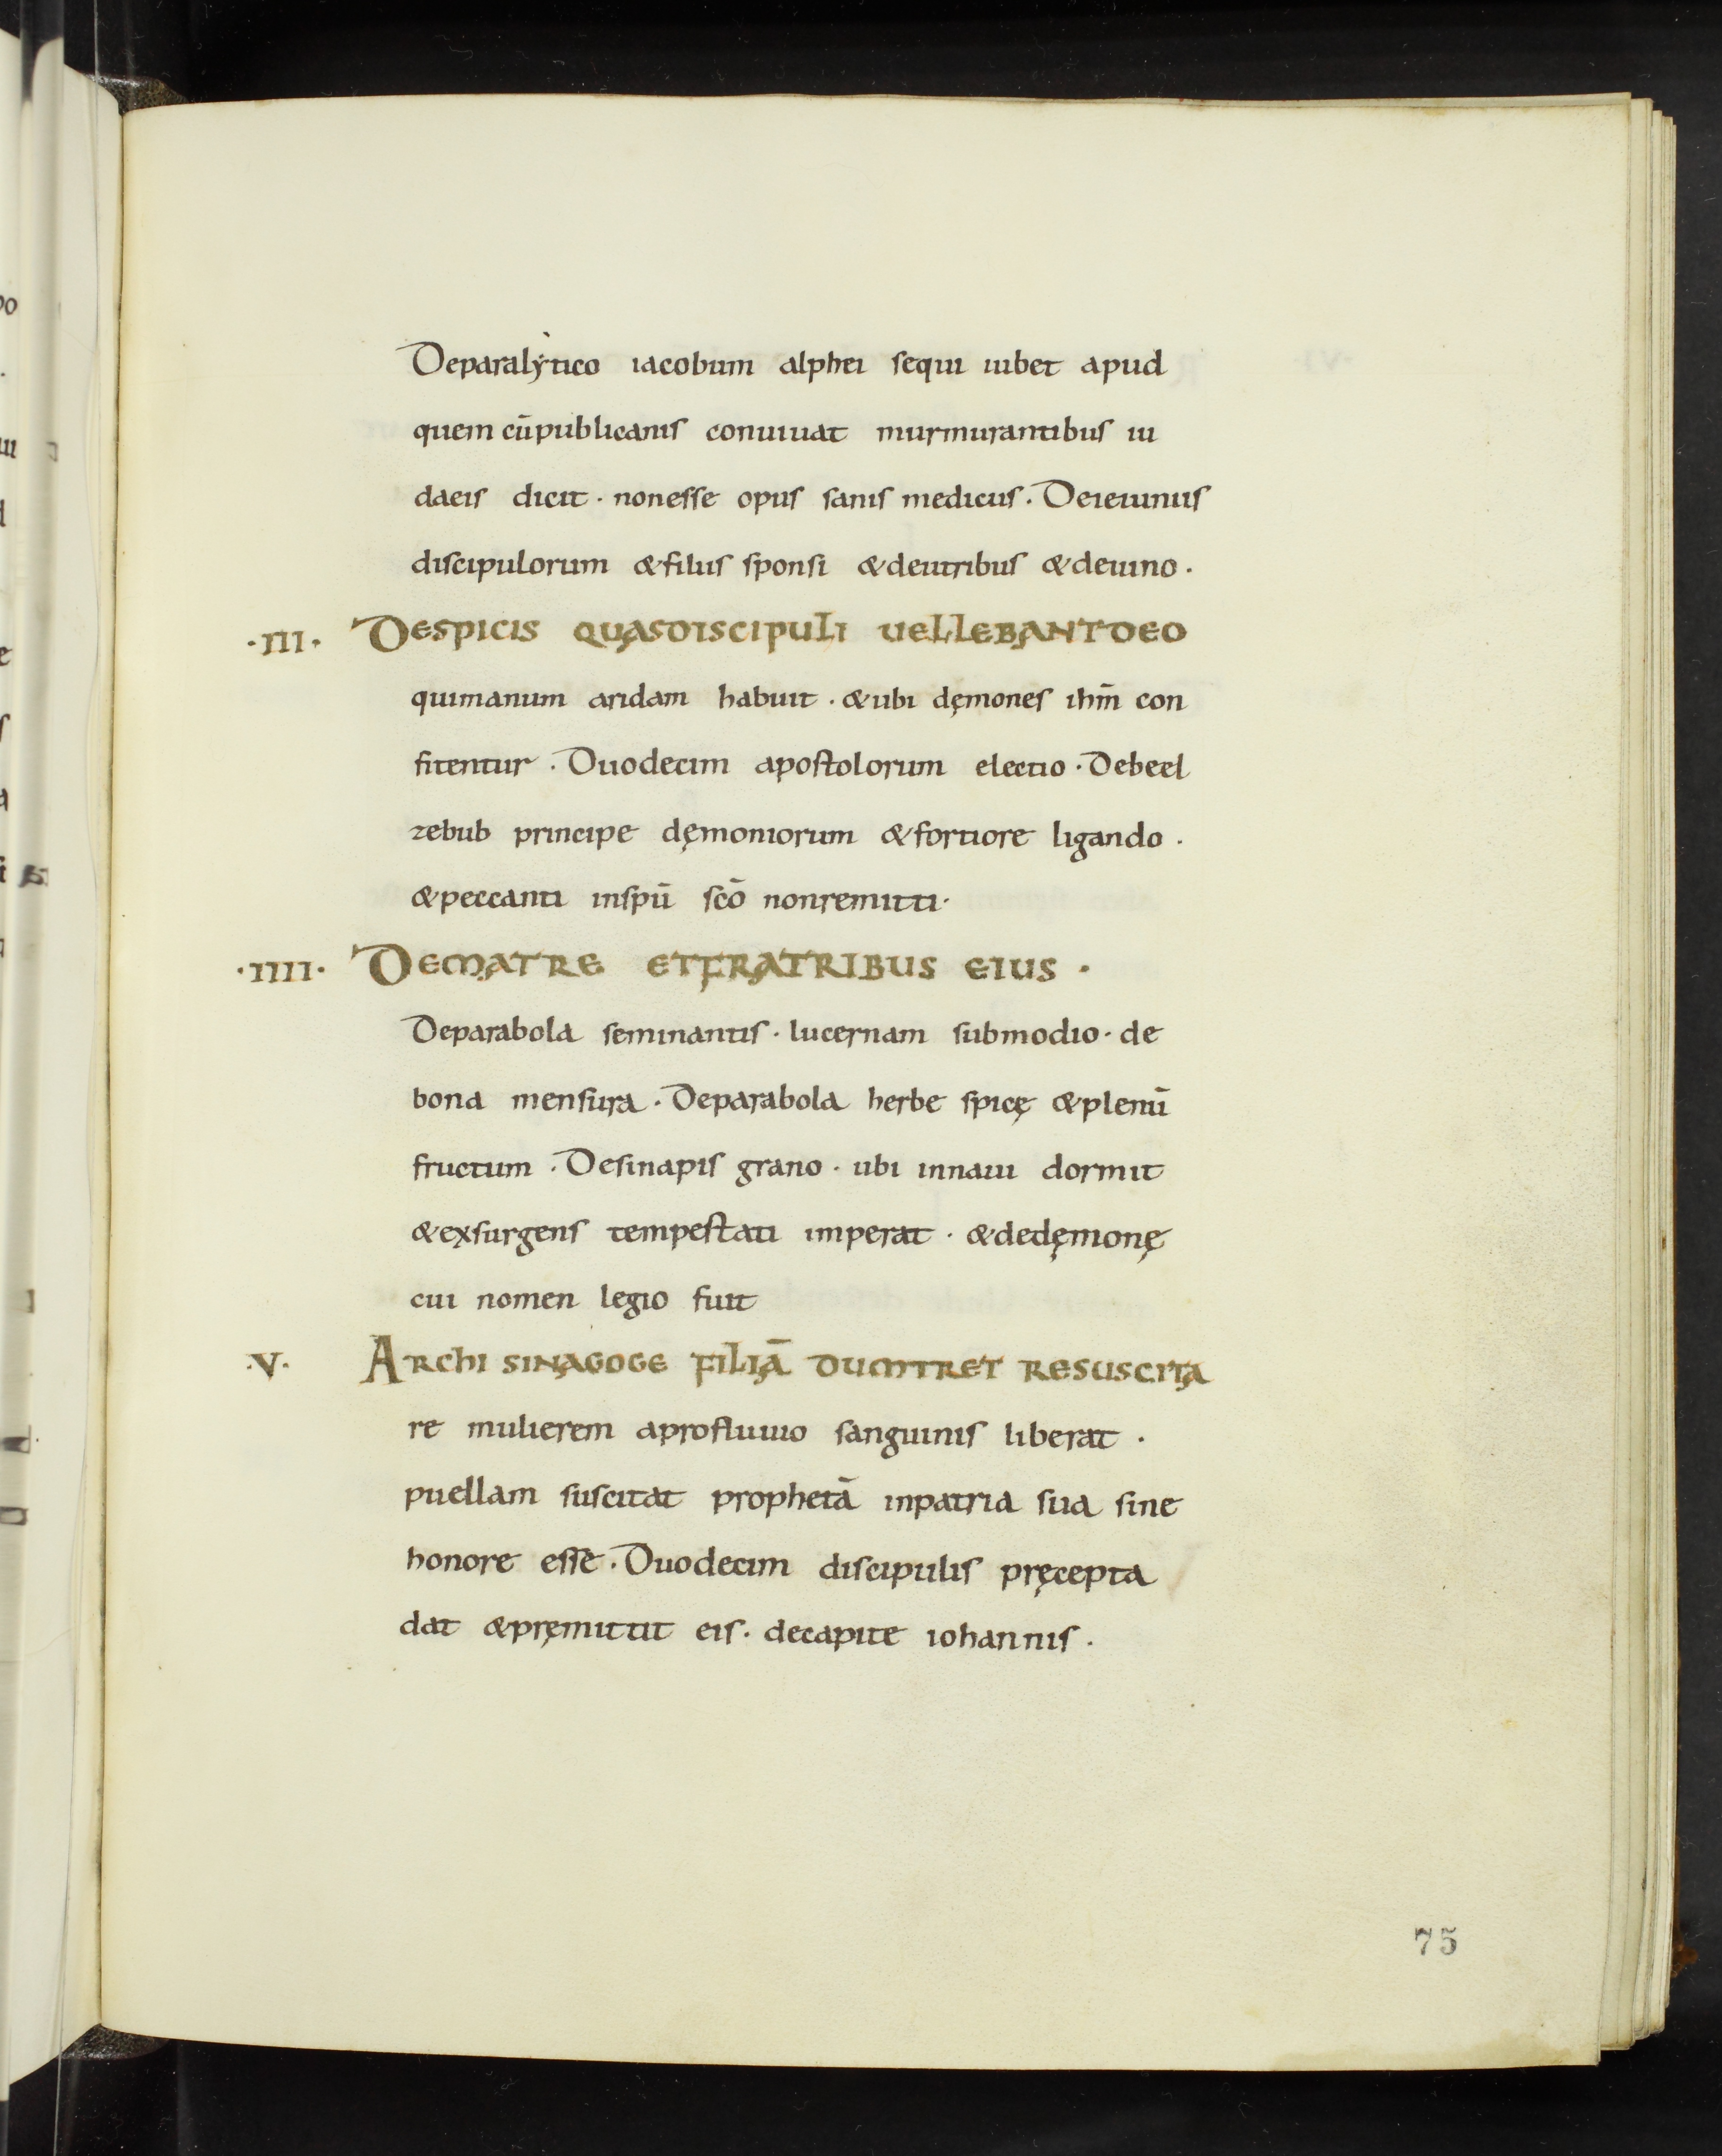 Deparalẏtico iacobum alphei sequi iubet apud
quem cū publicanis conuiuat murmurantibus iu
daeis dicit · nonesse opus sanis medicus · Deieiuniis
discipulorum &filiis sponsi &deutribus &deuino ·
·III· DESPICIS QUASDISCIPULI UELLEBANTDEO
quimanum aridam habuit · &ubi dęmones ihm̄ con
fitentur · Duodecim apostolorum electio · Debeel
zebub principe dęmoniorum &fortiore ligando ·
&peccanti inspū scō nonremitti ·
·IIII· DEMATRE ETFRATRIBUS EIUS ·
Deparabola seminantis · lucernam submodio · de
bona mensura · Deparabola herbe spicę &plenū
fructum · Desinapis grano · ubi innaui dormit
&exsurgens tempestati imperat · &dedęmonę
cui nomen legio fuit
·V· ARCHI SINAGOGE FILIĀ DUMIRET RESUSCITA
re mulierem aprofluuio sanguinis liberat ·
puellam suscitat prophetā inpatria sua sine
honore esse · Duodecim discipulis pręcepta
dat &pręmittit eis · decapite iohannis ·
75